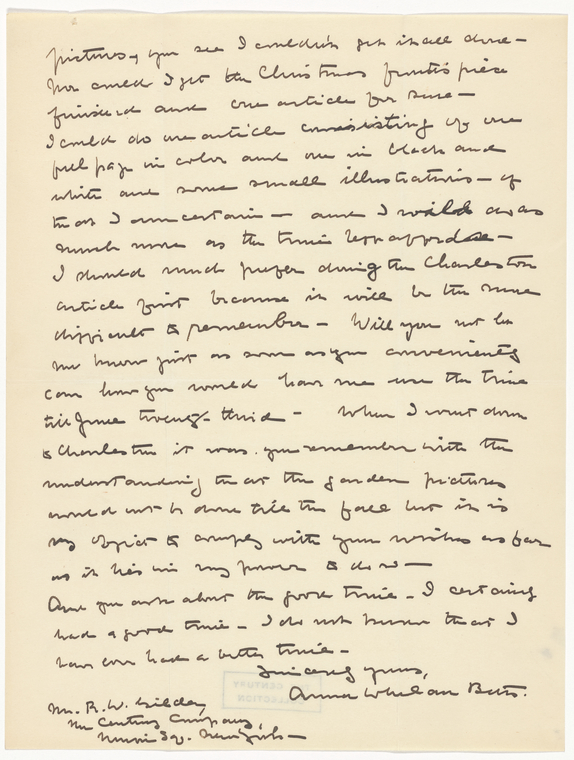 pictures, you see I couldn't get it all done –
Nor could I get the Christmas frontispiece
finished and one article for sure –
I could do one article consisting of one
full page in color and one in black and
white and some small illustrations – of
that I am certain – and I would do as
much more as the time
I should much prefer doing the Charleston
article first because it will be the more
difficult to remember – Will you not let
me know just as soon as you conveniently
can how you would have me use the time
till June twenty-third – When I went down
to Charleston it was, you remember with the
understanding that the garden pictures
would not be done till the fall but it is
my object to comply with your wishes as far
as it lies in my power to do so –
And you ask about the good time – I certainly
had a good time – I do not know that I
have ever had a better time –
Sincerely yours,
Anna Whelan Betts.
Mr. R. W. Gilder,
The Century Company,
Union Sq. New York –
CENTURY
COLLECTION